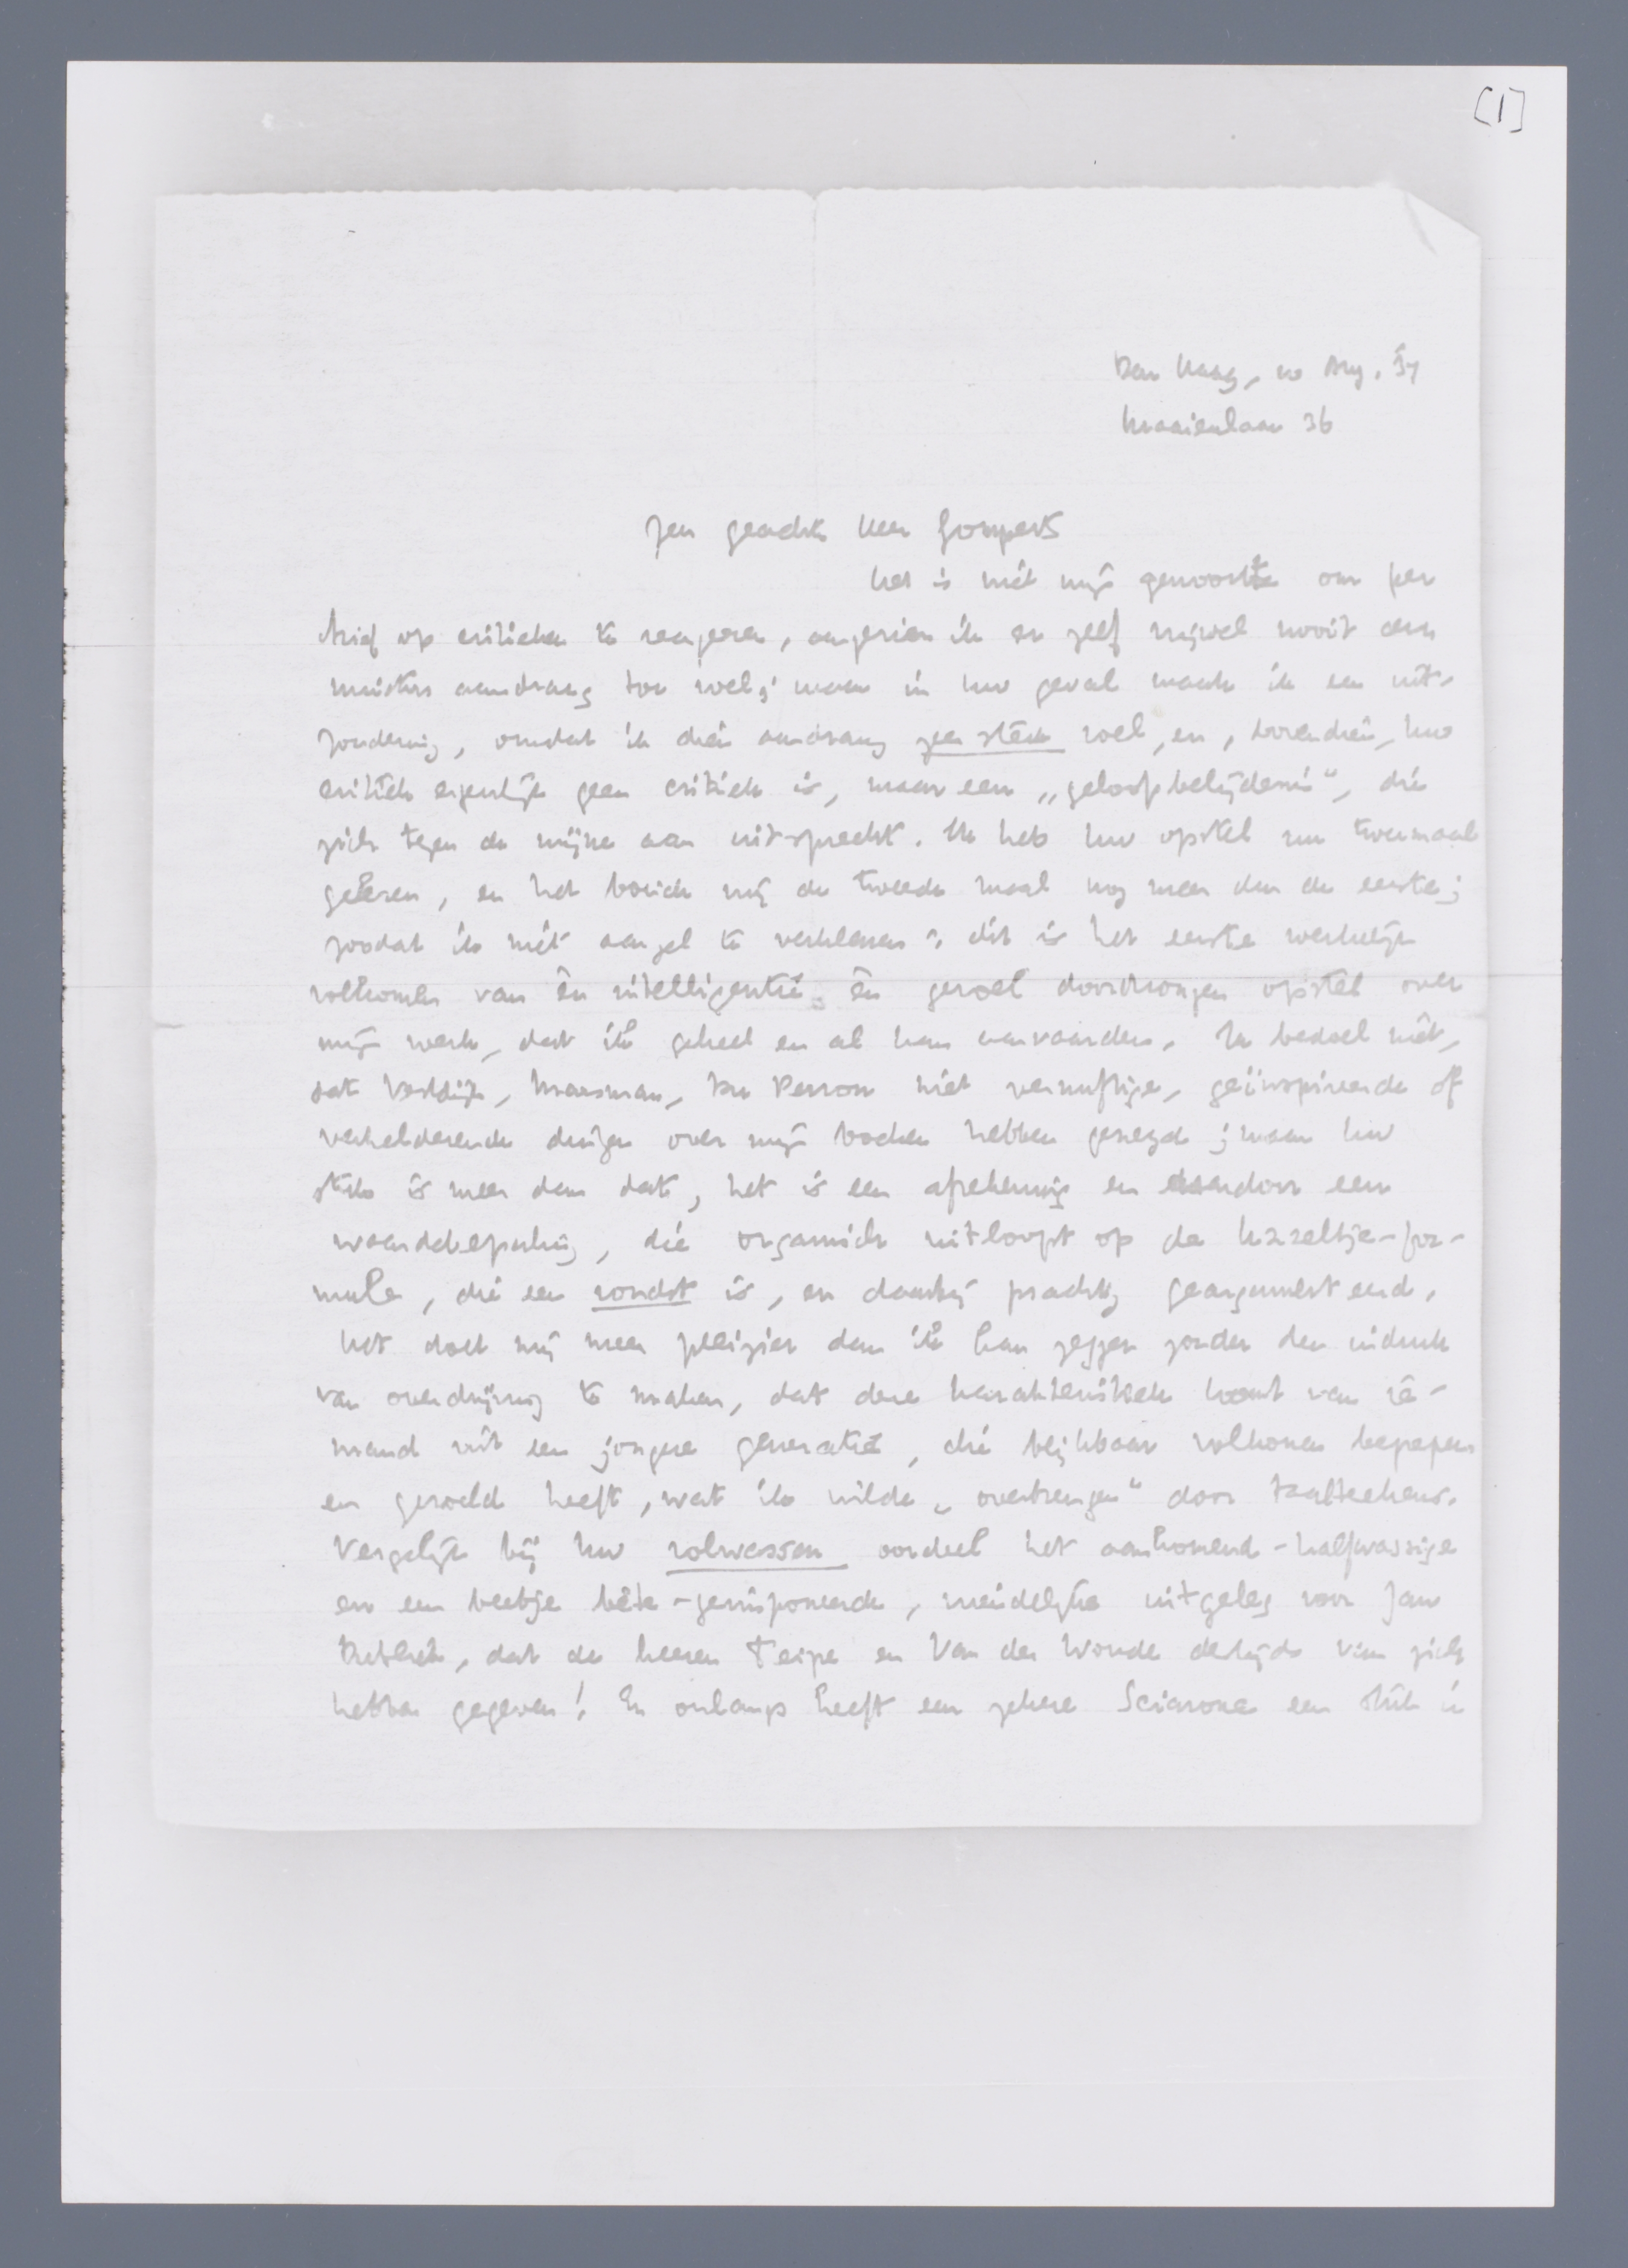 [1]
Den Haag, 10 Aug. '37
Kraaienlaan 36
Zeer geachte Heer Gompertz
Het is niet mijn gewoonte om per
brief op critieken te reageeren, aangezien ik er zelf vrijwel nooit den
minsten aandrang toe voel; maar in Uw geval maak ik een uit-
zondering, omdat ik dien aandrang zeer sterk voel, en, bovendien, Uw
critiek eigenlijk geen critiek is, maar een „geloofsbelijdenis", die
zich tegen de mijne aan uitspreekt. Ik heb Uw opstel nu tweemaal
gelezen, en het boeide mij de tweede maal nog meer dan de eerste;
zoodat ik niet aarzel te verklaren: dit is het eerste werkelijk
volkomen van èn intelligentie èn gevoel doordrongen opstel over
mijn werk, dat ik geheel en al kan aanvaarden. Ik bedoel niet,
dat Vestdijk, Marsman, Du Perron niet vernuftige, geïnspireerde of
verhelderende dingen over mijn boeken hebben gezegd; maar Uw
stuk is meer dan dat, het is een afrekening en daardoor een
waardebepaling, die organisch uitloopt op de Hazeltje-for-
mule, die een vondst is, en daarbij prachtig geargumenteerd.
Het doet mij meer pleizier dan ik kan zeggen zonder den indruk
van overdrijving te maken, dat deze karakteristiek komt van ie-
mand uit een jongere generatie, die blijkbaar volkomen begrepen
en gevoeld heeft, wat ik wilde „overbrengen" door taalteekens.
Vergelijk bij Uw volwassen oordeel het aankomend-halfwassige
en een beetje bête-geëxponeerde, vriendelijke uitgeleg voor Jan
Publiek, dat de heeren Teipe en Van der Woude destijds van zich
hebben gegeven! En onlangs heeft een zekere Sciarone een stuk in